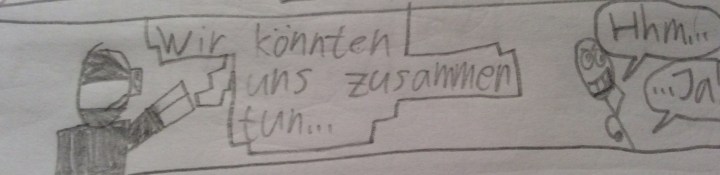 Wir könnten
uns zusammen
tun...
Hhm...
...Ja